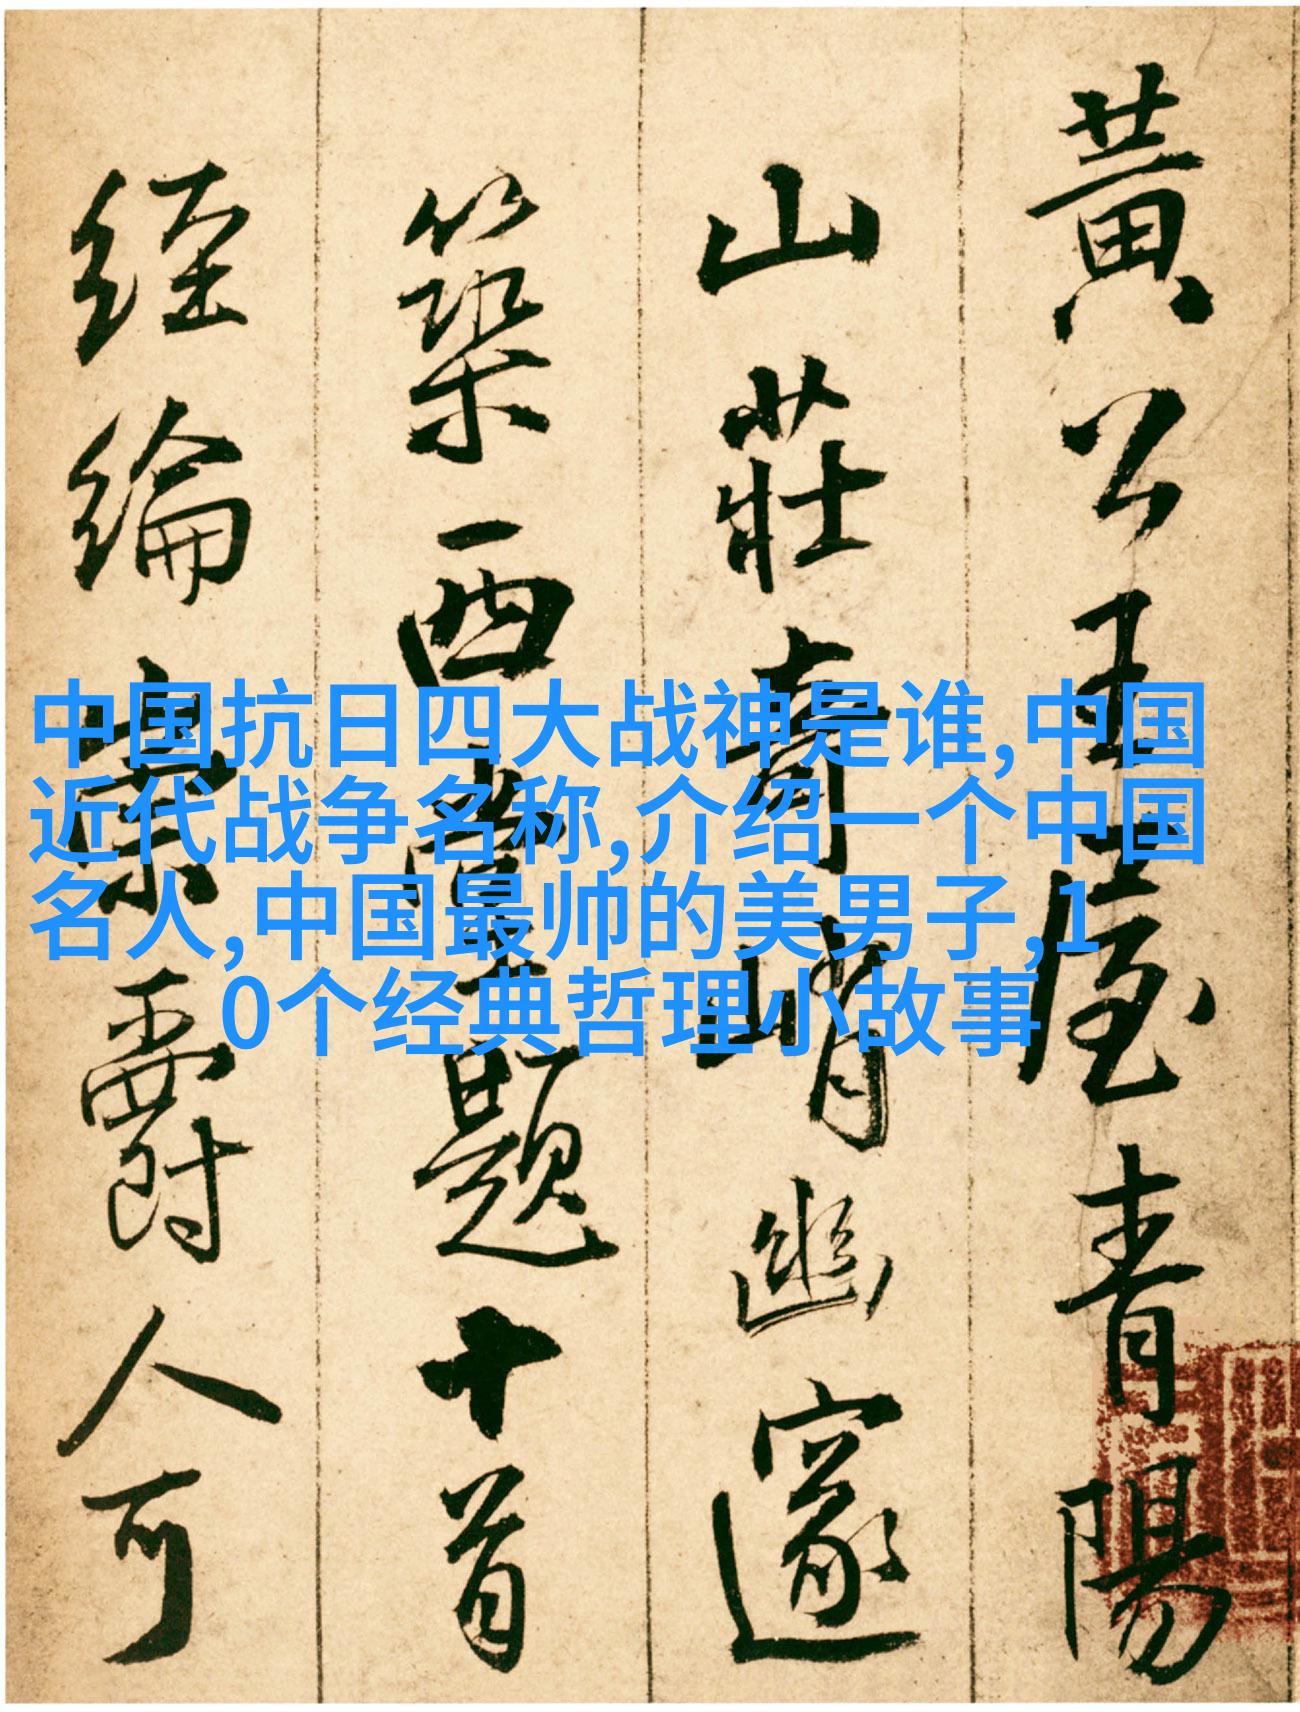 黃公王屋青陽
山莊奇峭幽邃
築西堂題十首
經綸素爵人可
中国抗日四大战神是谁,中国
近代战争名称,介绍一个中国
名人,中国最帅的美男子,1
0个经典哲理小故事